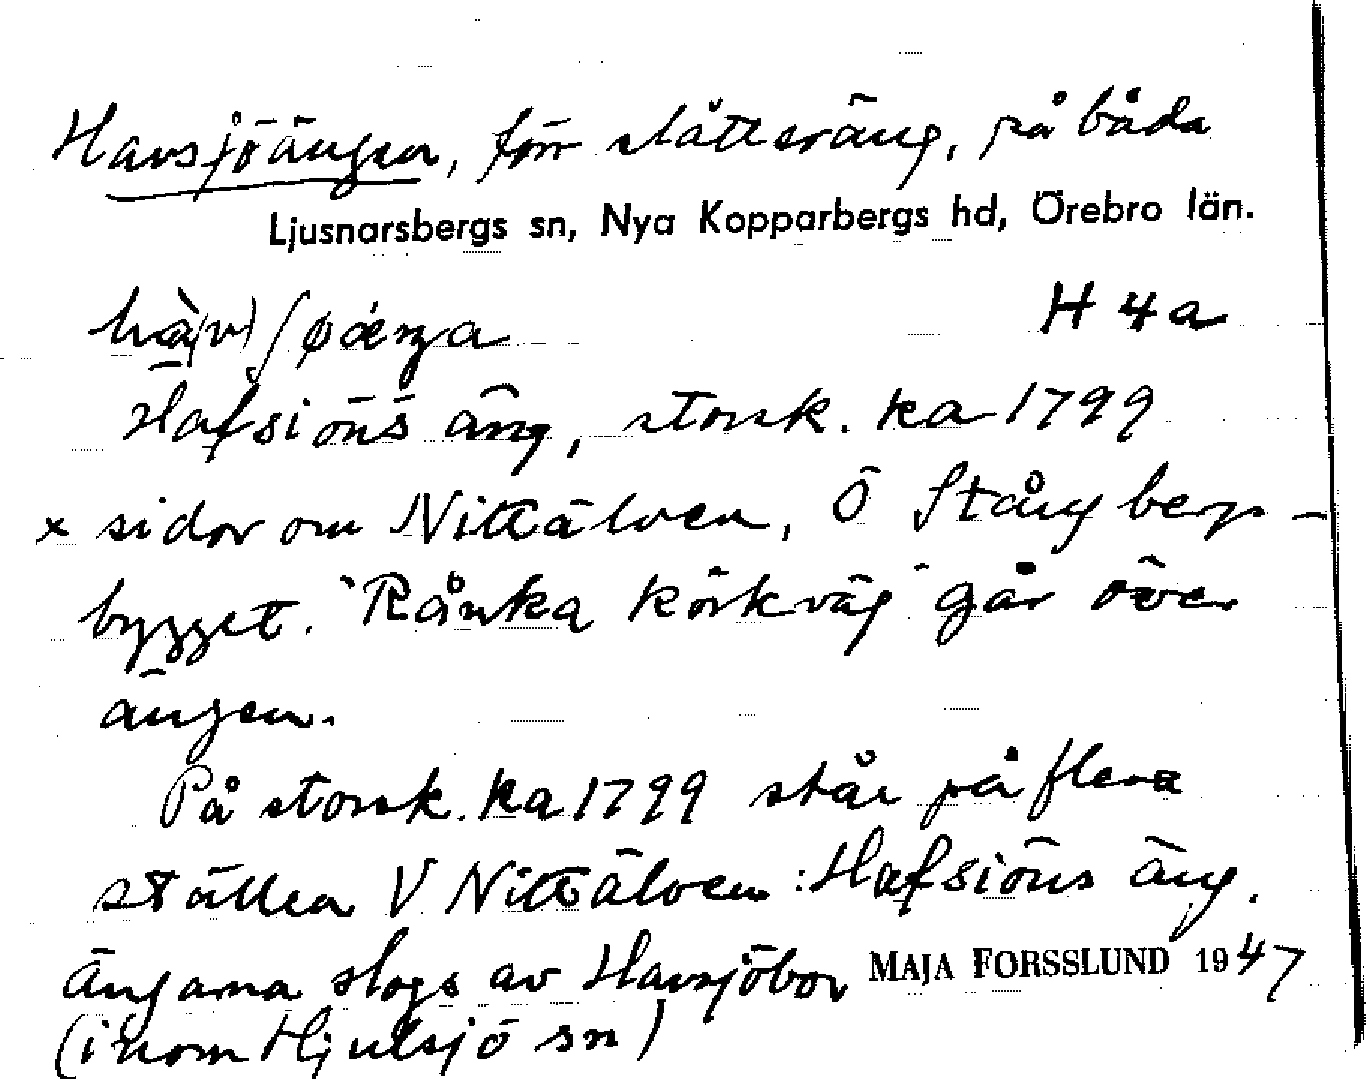 Havsjöängen, förr slåtteräng, på båda
Ljusnarsbergs sn, Nya Kopparbergs hd, Örebro län.
hà(v)ʃøæŋa H 4 a
Hafsiöns äng, storsk. ka 1799
x sidor om Nittälven, Ö Stångberg-
bygget. "Rånka körkväg" går över
ängen.
På storsk. ka 1799 står på flera
ställen V Nittälven: Hafsiöns äng.
Ängarna slogs av Havsjöbor MAJA FORSSLUND 1947
(inom Hjulsjö sn)